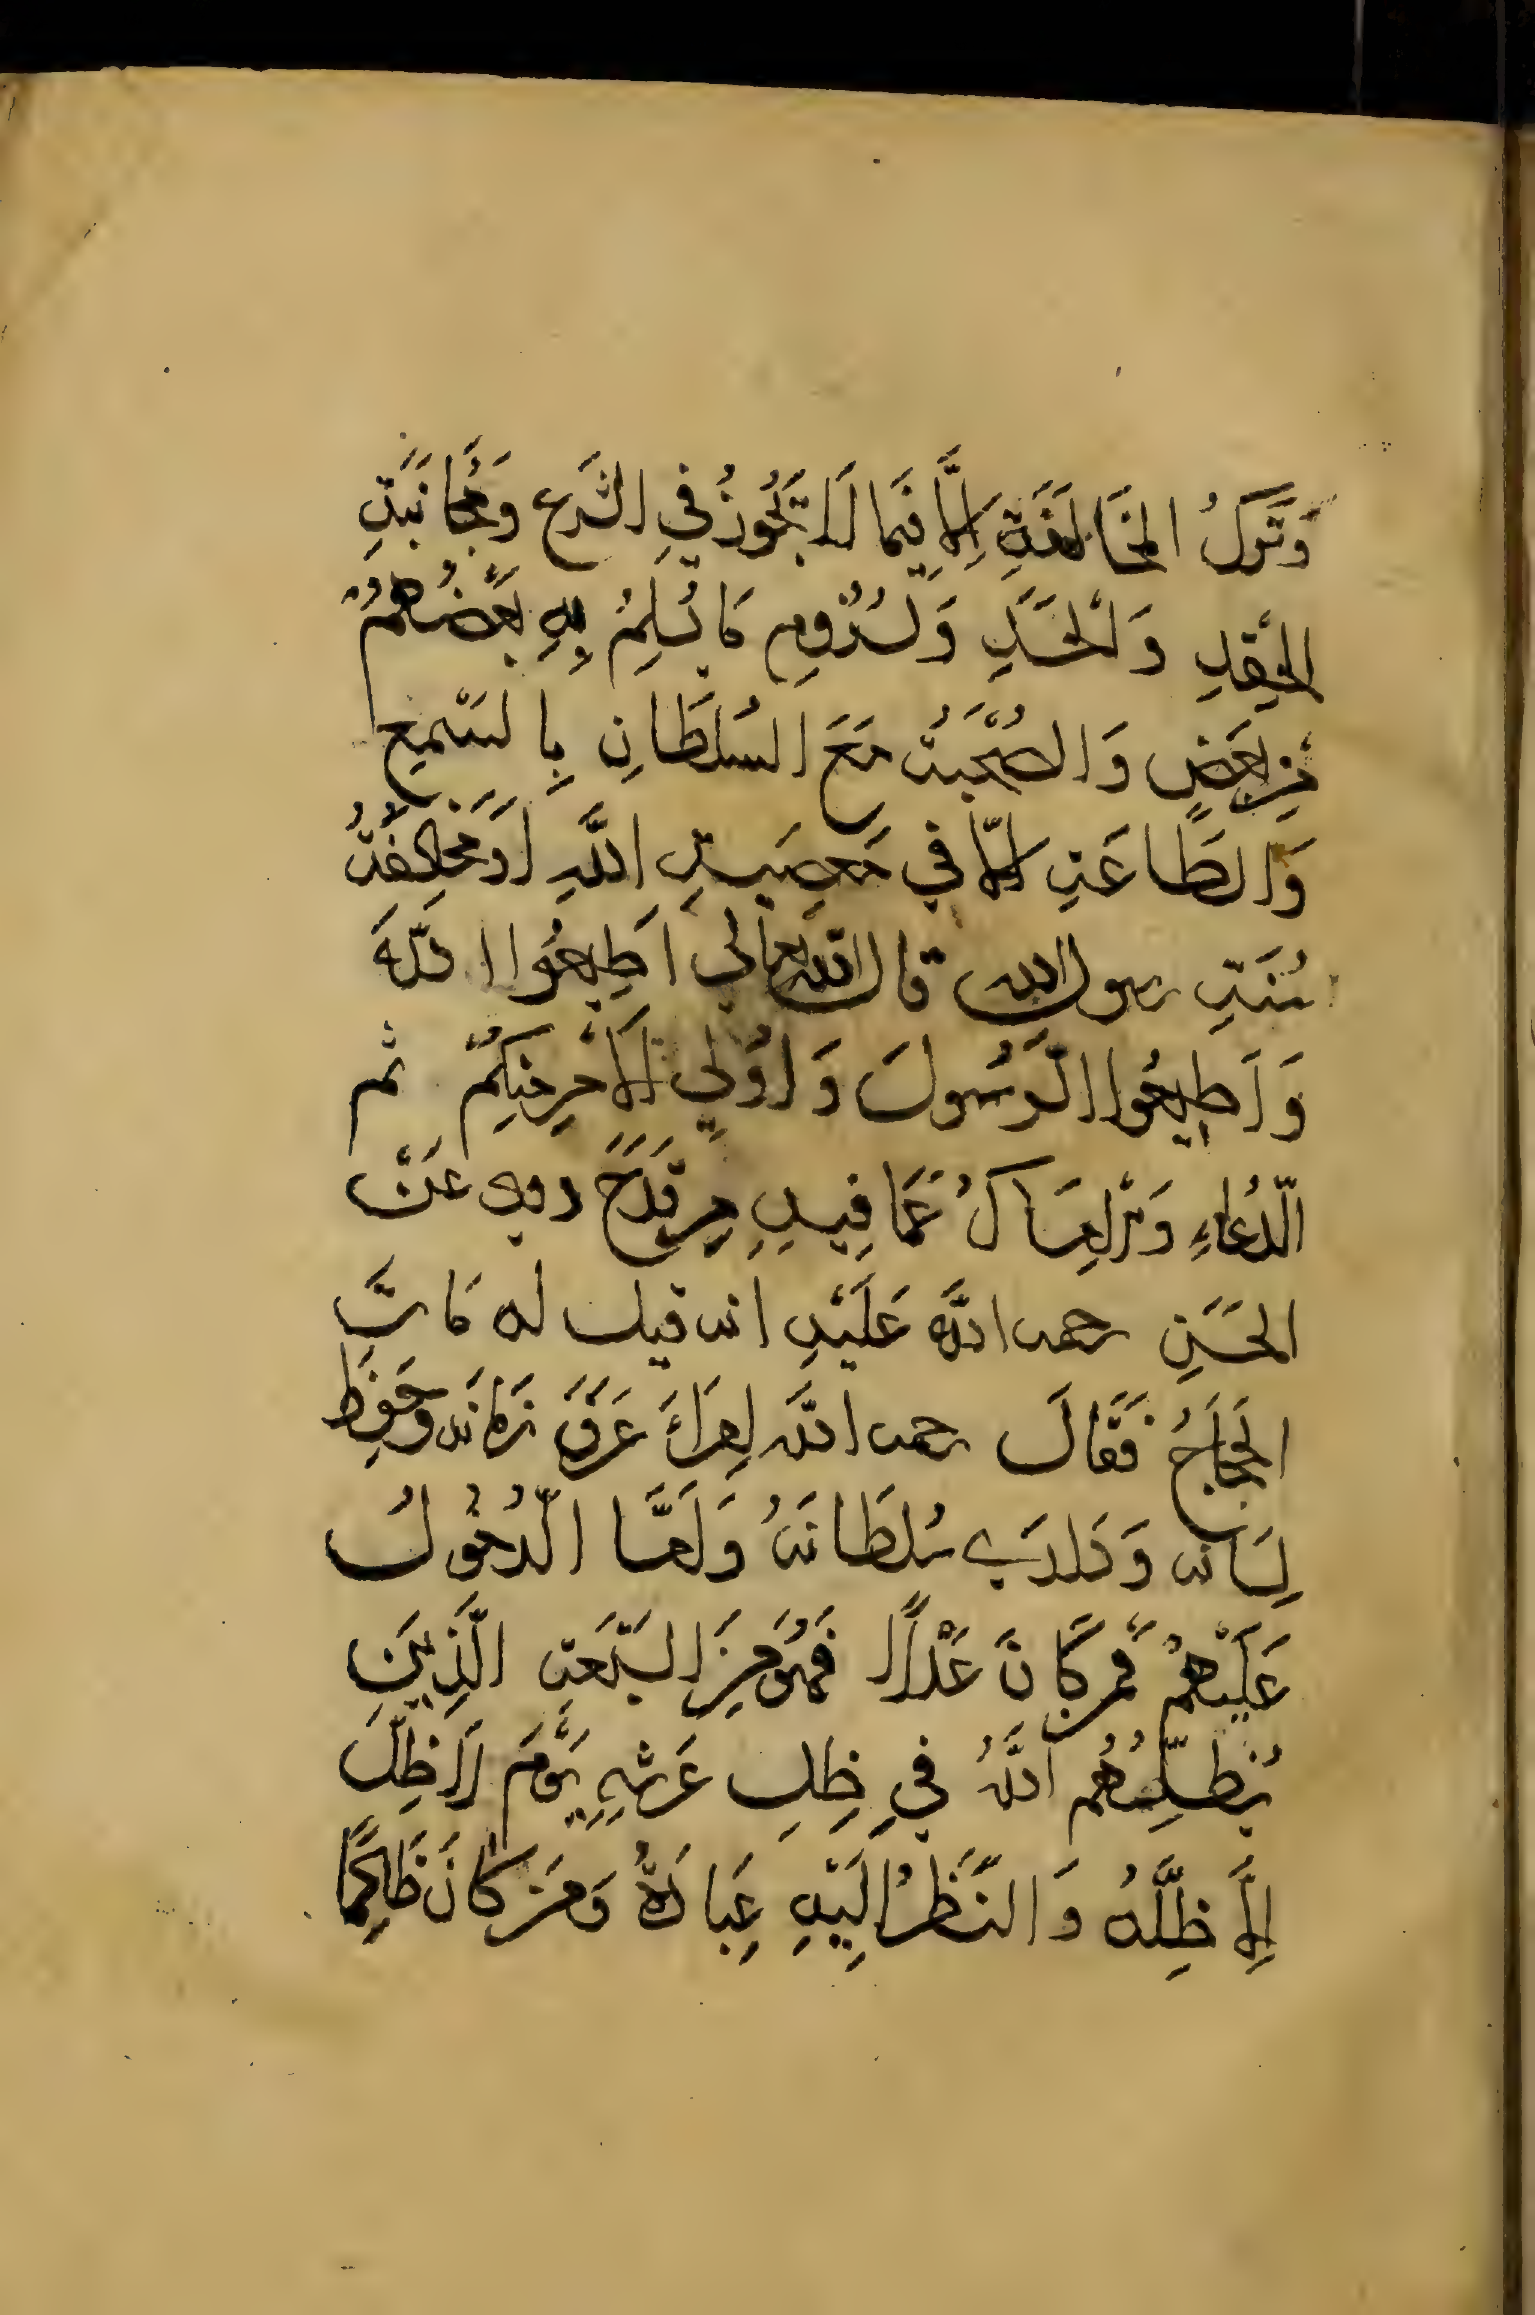 وَتَركُ المخَالَفَةِ إِلَّا فِيمَا لَا يَجُوزُ فِي الشَرعِ وَمُجَانَبَةِ
الحِقدِ وَالْحَسَدِ وَلُزُومِ مَا يُسلِمُ بِهِ بَعْضُهُمْ
مِن بَعضٍ وَالصُحْبَةُ مَعَ السُلطَانِ بِالسَمعِ
وَالطَاعَةِ إلّا فِي مَعصِيَةِ اللَّهِ اَو مخَالِفَةُ
سُنَةِ رسول الله قال الله تعالى اَطِيعُوا اللَّهَ
وَاَطِيعُوا الرَّسُولَ وَاُولِي الاَمْرِ مِنكُمْ ثم
الدُعَاءِ وَالِامسَاكُ عَمَا فِيهِ مِن قَدَحٍ روي عَنْ
الحَسَنِ رحمه اللَّه عَلَيْهِ انه قيل له مَاتَ
الحَجَاجُ فَقَالَ رحمه اللَّه لِامرَاءٍ عَرَفَ زَمَانَه وَحَفِظَ
لِسَانه وَدَارَي سُلطَانَهُ وَامَّا الدُخُولُ
عَلَيْهمْ فَمَن كَانَ عَدْلاً فَهُوَ مِنَ السَبْعَةِ الَّذِينَ
يُظِلّهُم اللَّهُ فِي ظِلِ عَرشِهِ يَوْمَ لَا ظِلَّ
إِلَّا ظِلَّهُ وَالنَّظَرُ اِلَيْهِ عِبَادَةُ وَمَن كَانَ ظَالِمًا